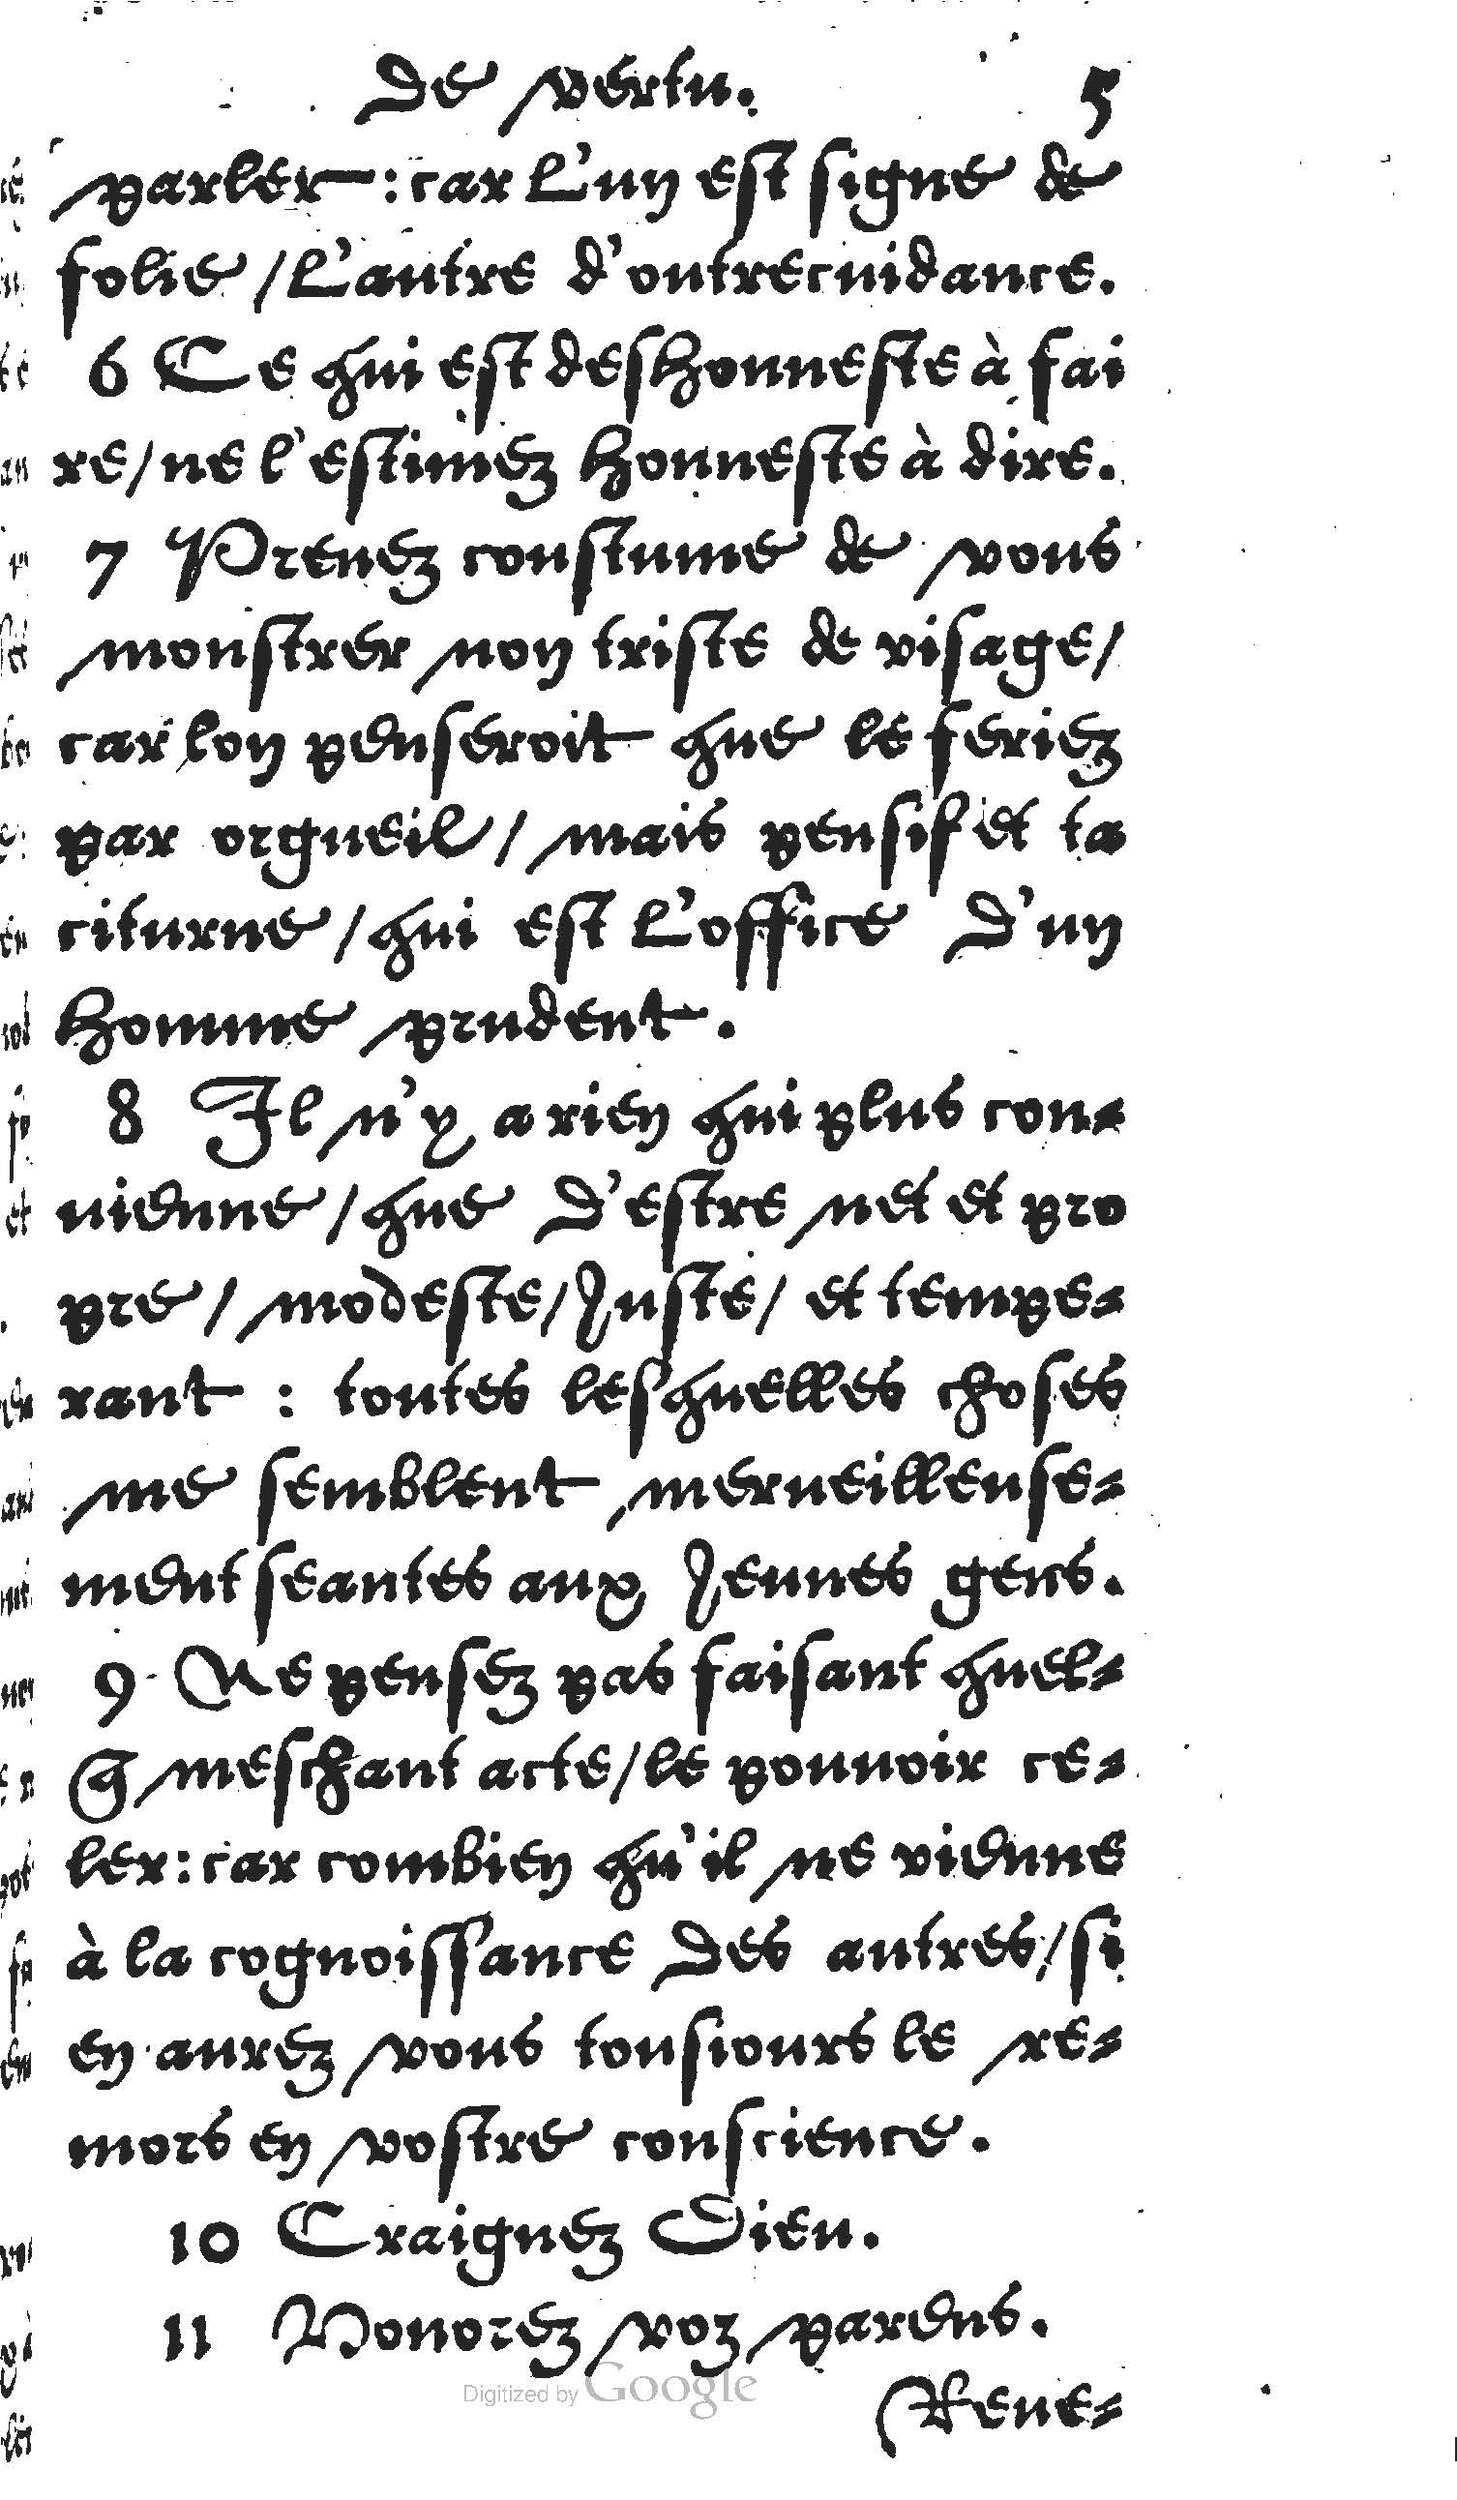 de vertu. 5
parler : car l'un est signe de
folie / l'autre d'outrecuidance.
6 Ce qui est deshonneste à fai
re / ne l'estimez honneste à dire.
7 Prenez coustume de vous
monstrer non triste de visage /
car lon penseroit que le feriez
par orgueil / mais pensif et ta
citurne / qui est l'office d'un
homme prudent.
8 Il n'y a rien qui plus con-
uienne / que d'estre net et pro
pre / modeste / Juste / et tempe-
rant : toutes lesquelles choses
me semblent merueilleuse-
ment seantes aux Jeunes gens.
9 Ne pensez pas faisant quel-
q̃ meschant acte / le pouuoir ce-
ler : car combien qu'il ne vienne
à la cognoissance des autres / si
en aurez vous tousiours le re-
mors en vostre conscience.
10 Craignez Dieu.
11 Honorez voz parens.
Digitized by Google
Reue-